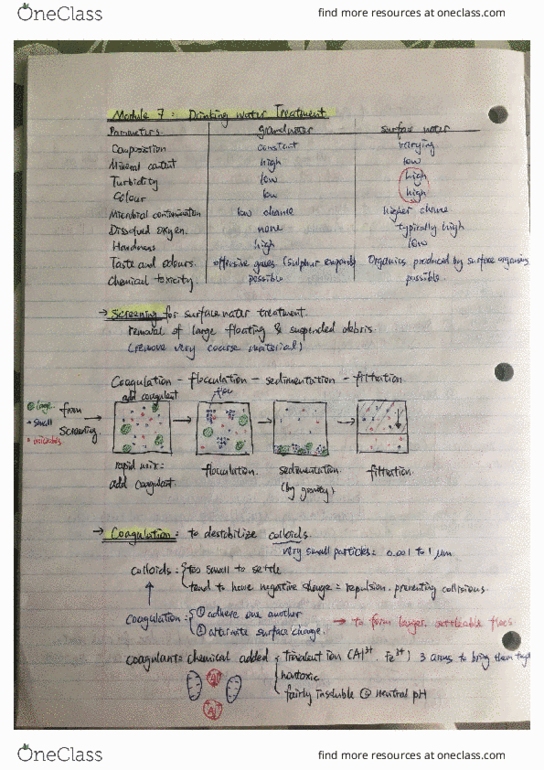 OneClass
find more resources at oneclass.com
Module 7: Drinking water Treatment
Parameters groundwater surface water
Composition constant varying
Mineral content high low
Turbidity low high
Colour low high
Microbial contamination low chance higher chance
Dissolved oxygen. none typically high
Hardness high low
Taste and odours. offensive gases (sulphur Organics produced by surface organisms
Chemical toxicity. possible possible.
→ Screening for surface water treatment.
removal of large floating & suspended debris.
(remove very coarse material)
Coagulation - flocculation - sedimentation - filtration.
add coagulant floc
large from
small screening
microbes
rapid mix: flocculation. sedimentation filtration.
add coagulant. (by gravity)
→ Coagulation: to destabilize colloids.
very small particles: 0.001 to 1 μm
colloids: too small to settle
tend to have negative charge = repulsion. preventing collisions.
Coagulation: ① adhere one another
② surface charge. → to form larger, settleable flocs
coagulant: chemical added trivalent ion (Al3+, Fe3+) 3 arms to bring them
nontoxic
fairly insoluble @ neutral pH
Al
Al
OneClass
find more resources at oneclass.com